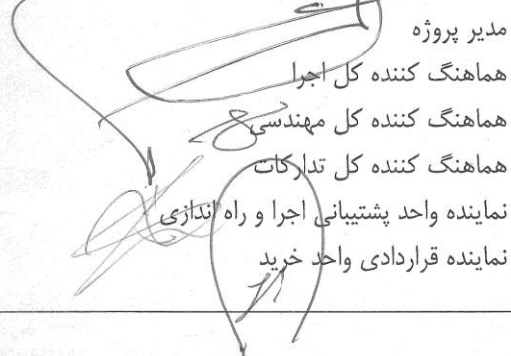 مدیر پروژه
هماهنگ کننده کل اجرا
هماهنگ کننده کل مهندسی
هماهنگ کننده کل تدارکات
نماینده واحد پشتیبانی اجرا و راه اندازی
نماینده قراردادی واحد خرید